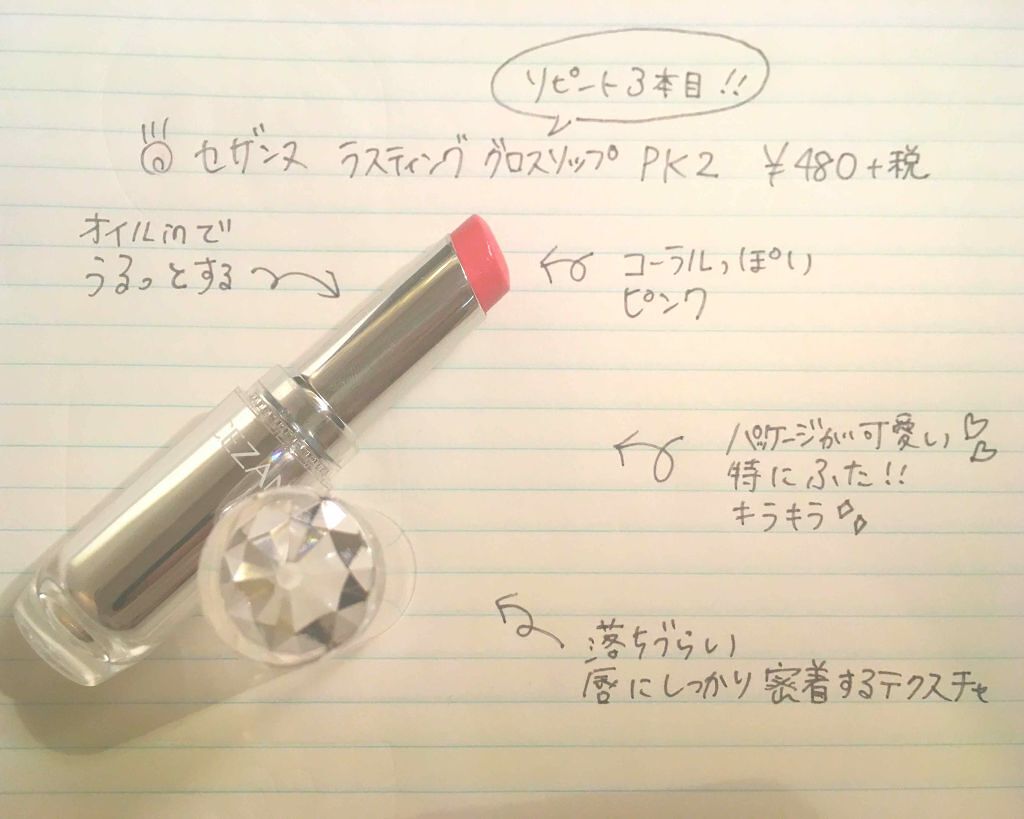 リピート3本目!!
セザンヌ ラスティング グロスリップ PK2 ¥480+税
オイルinで
うるっとする
コーラルっぽい
ピンク
CEZAN
パッケージが可愛い
特にふた!!
キラキラ
落ちづらい
唇にしっかり密着するテクスチャ